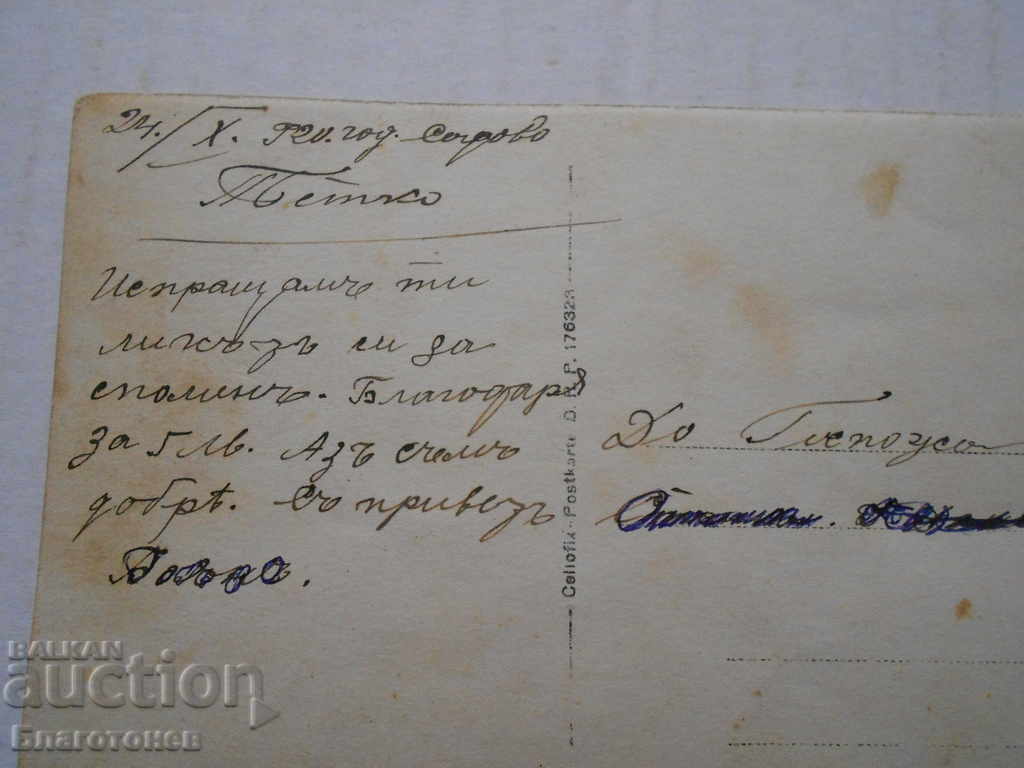 24./X. 920. год. Садово
Тетко
Испращамъ ти
ликъзъ си за
споменъ. Благодаря
за Глв. Азъ съмъ
добрѣ. Съ привезъ
Celiofix-Postkarte D.R.P. 176323
До Господжа
BALKAN
auction
Благотонев